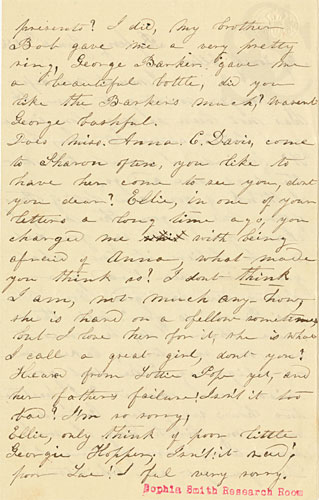 presents? I did, my brother
Bob gave me a very pretty
ring, George Barker, gave me
a beautiful bottle, did you
like the Barkers much? wasent
George bashful.
Does Miss. Anna. C. Davis, come
to Sharon often, you like to
have her come to see you, dont
you dear? Ellie, in one of your
letters a long time ago, you
charged me with being
afreid of Anna, what made
you think so? I dont think
I am, not much any how,
she is hard on a fellow sometimes,
but I love her for it, she is what
I call a great girl, dont you?
Heard from Lottie Pope yet, and
her father's failure? Isn't it too
bad? I'm so sorry,
Ellie, only think of poor little
Georgie Hopper. Isn't it
poor I feel very sorry.
Sophia Smith Research Room